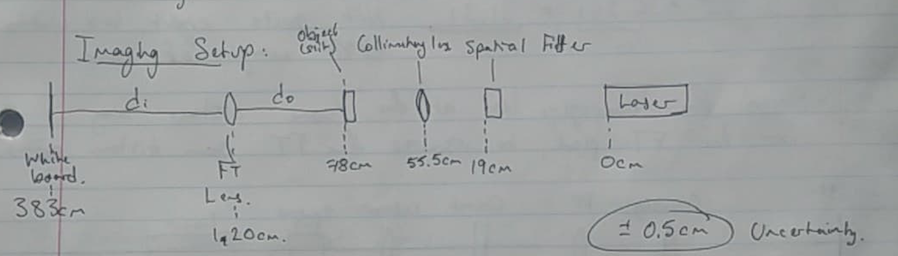 Imaging Setup:
Object
(slit)
Collimating lens
Spatial Filter
di
do
Laser
White
board.
383cm
FT
Lens.
120cm.
78cm
55.5cm
19cm
0cm
± 0.5cm Uncertainty.